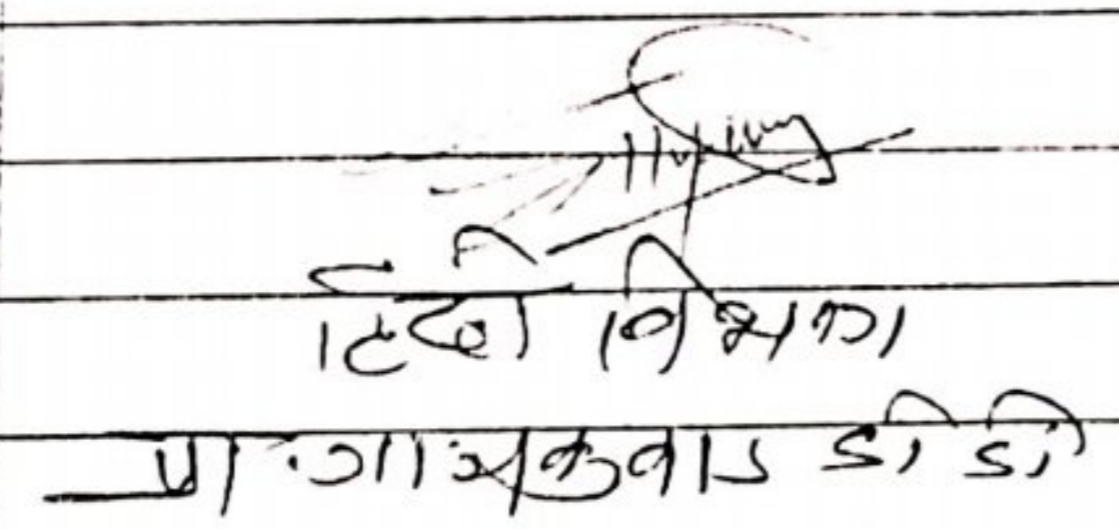 हिंदी विभाग
प्रा. गायकवाड डी डी